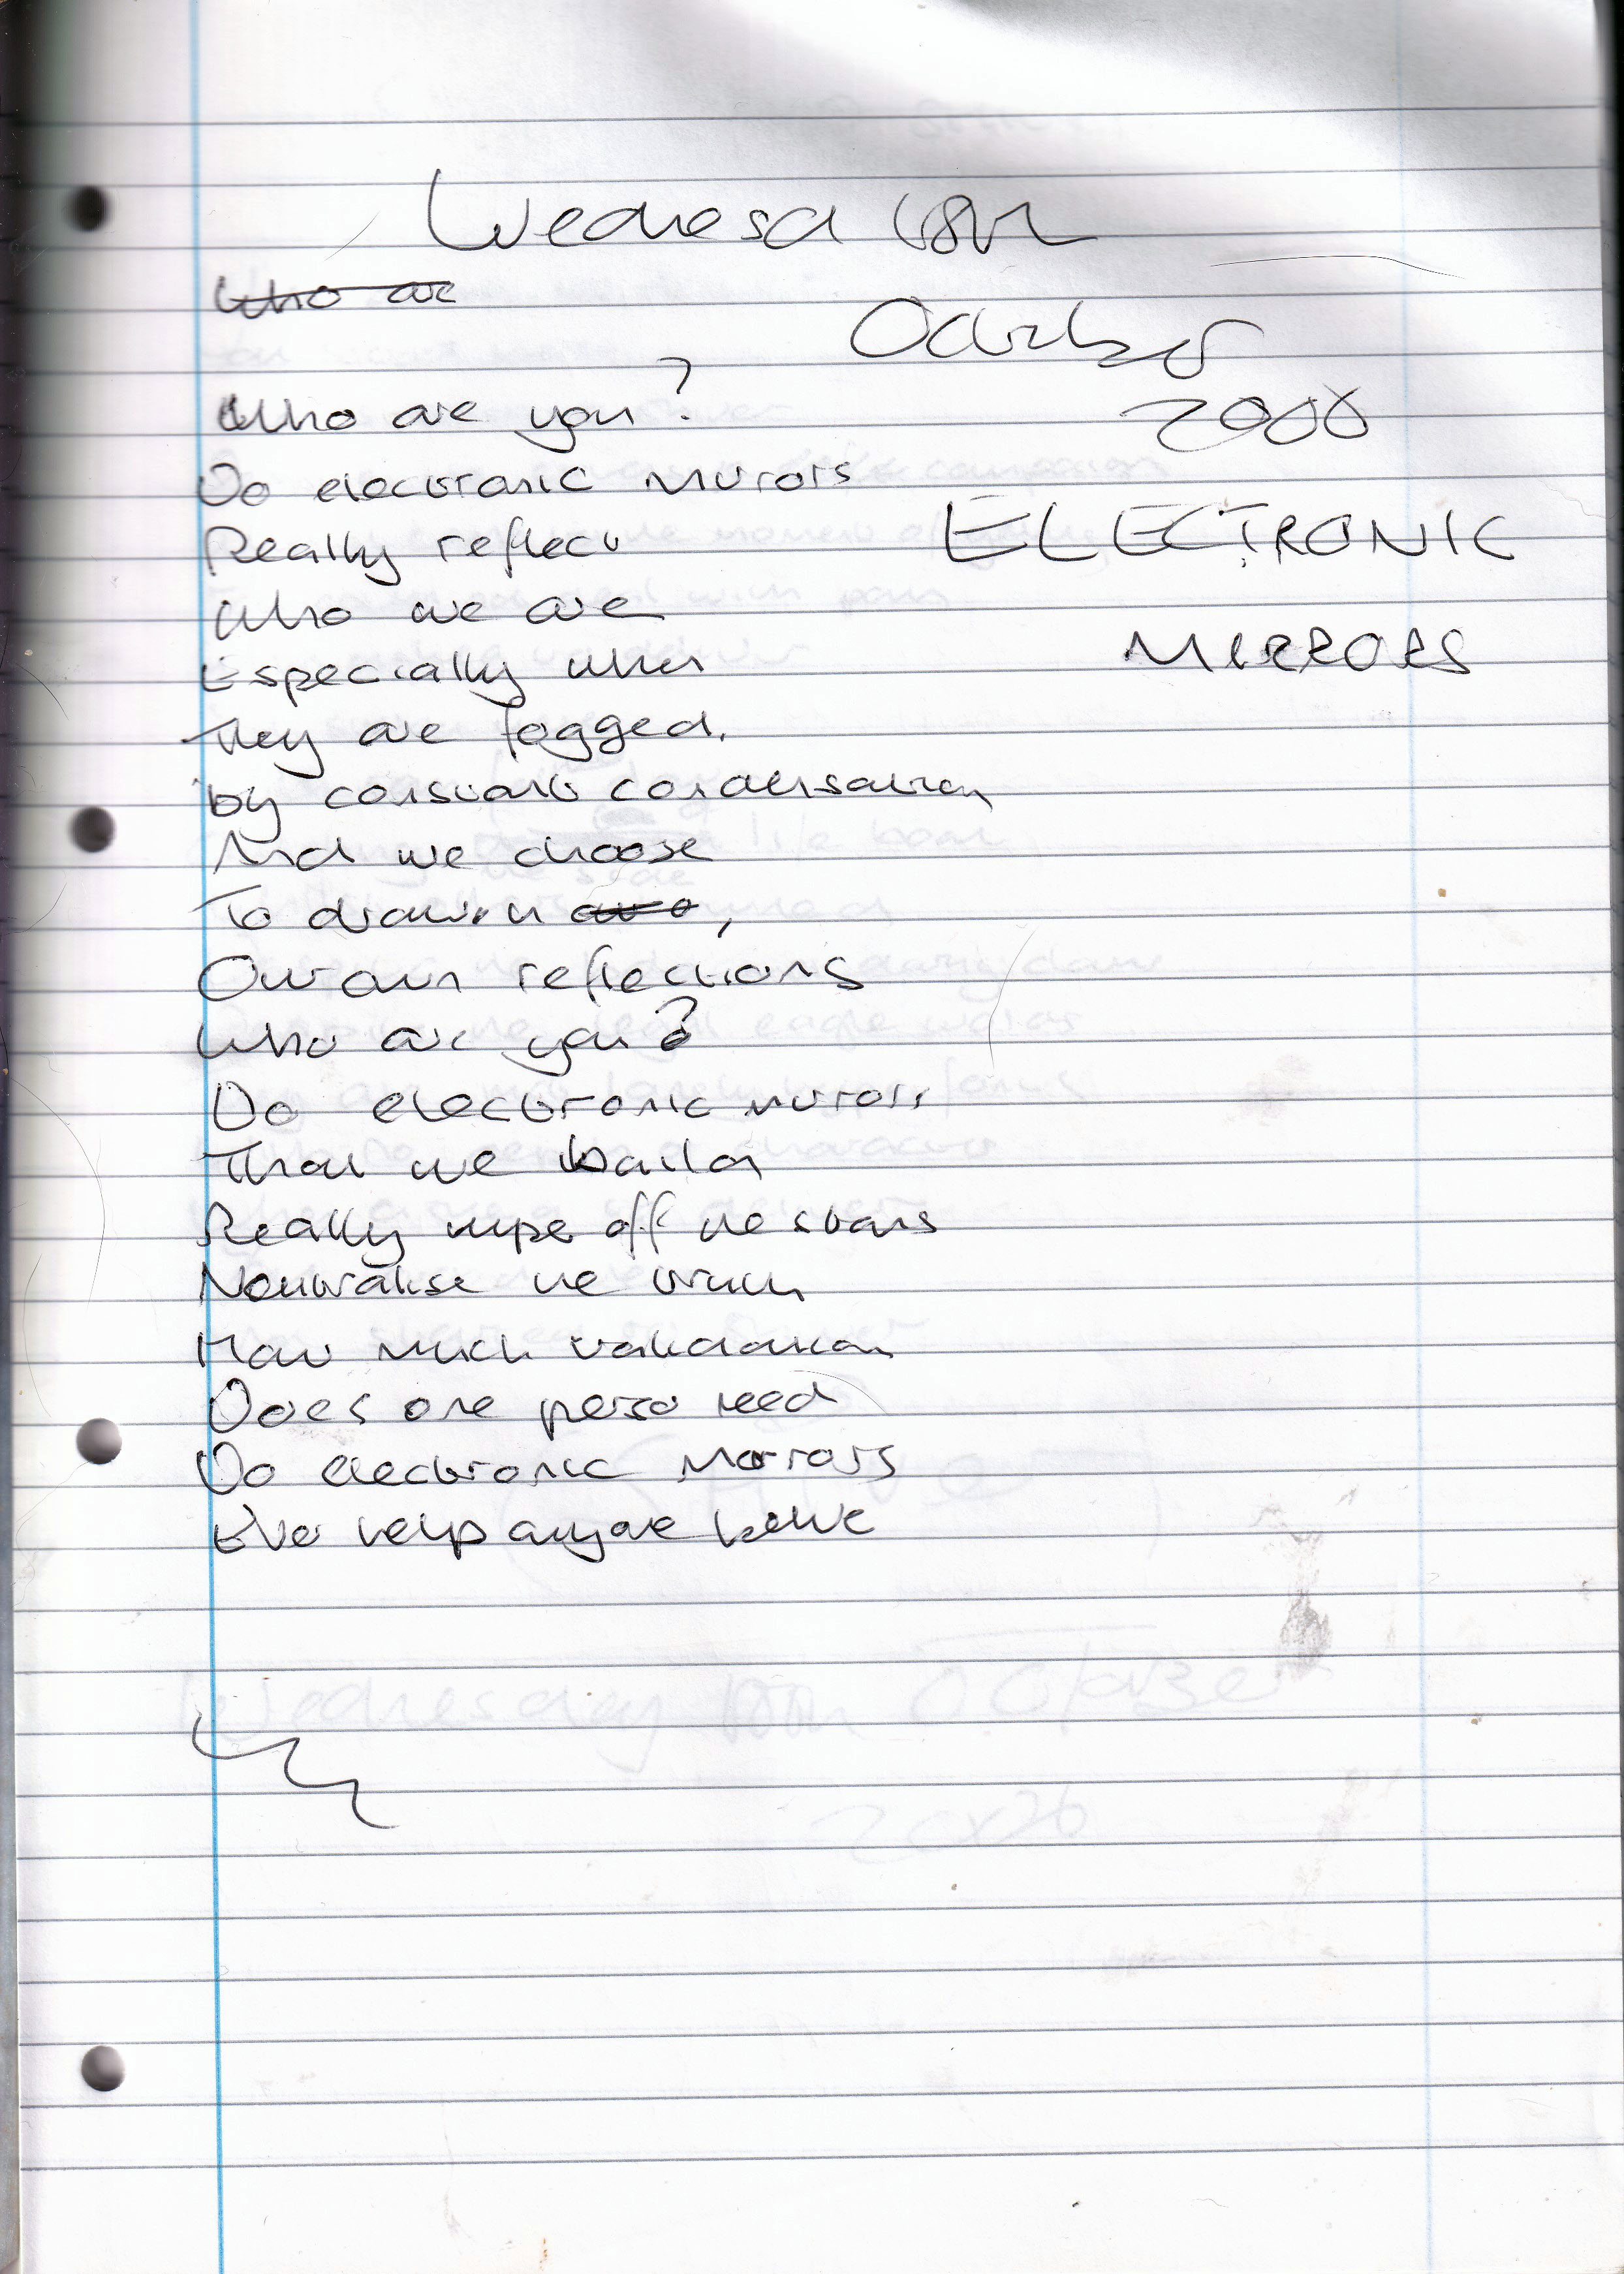 Wednesd 18th
Who are
October
Who are you?
2000
Do electronic mirrors
ELECTRONIC
Really reflect
Who we are
MIRRORS
Especially when
They are fogged,
by constant condensation
And we choose
To drown,
Our own reflections
Who are you?
Do electronic mirrors
That we
Really wipe off the stains
Neutralise the truth
How much validation
Does one perso need
Do electronic mirrors
Ever help anyone
Wednesday 18th October